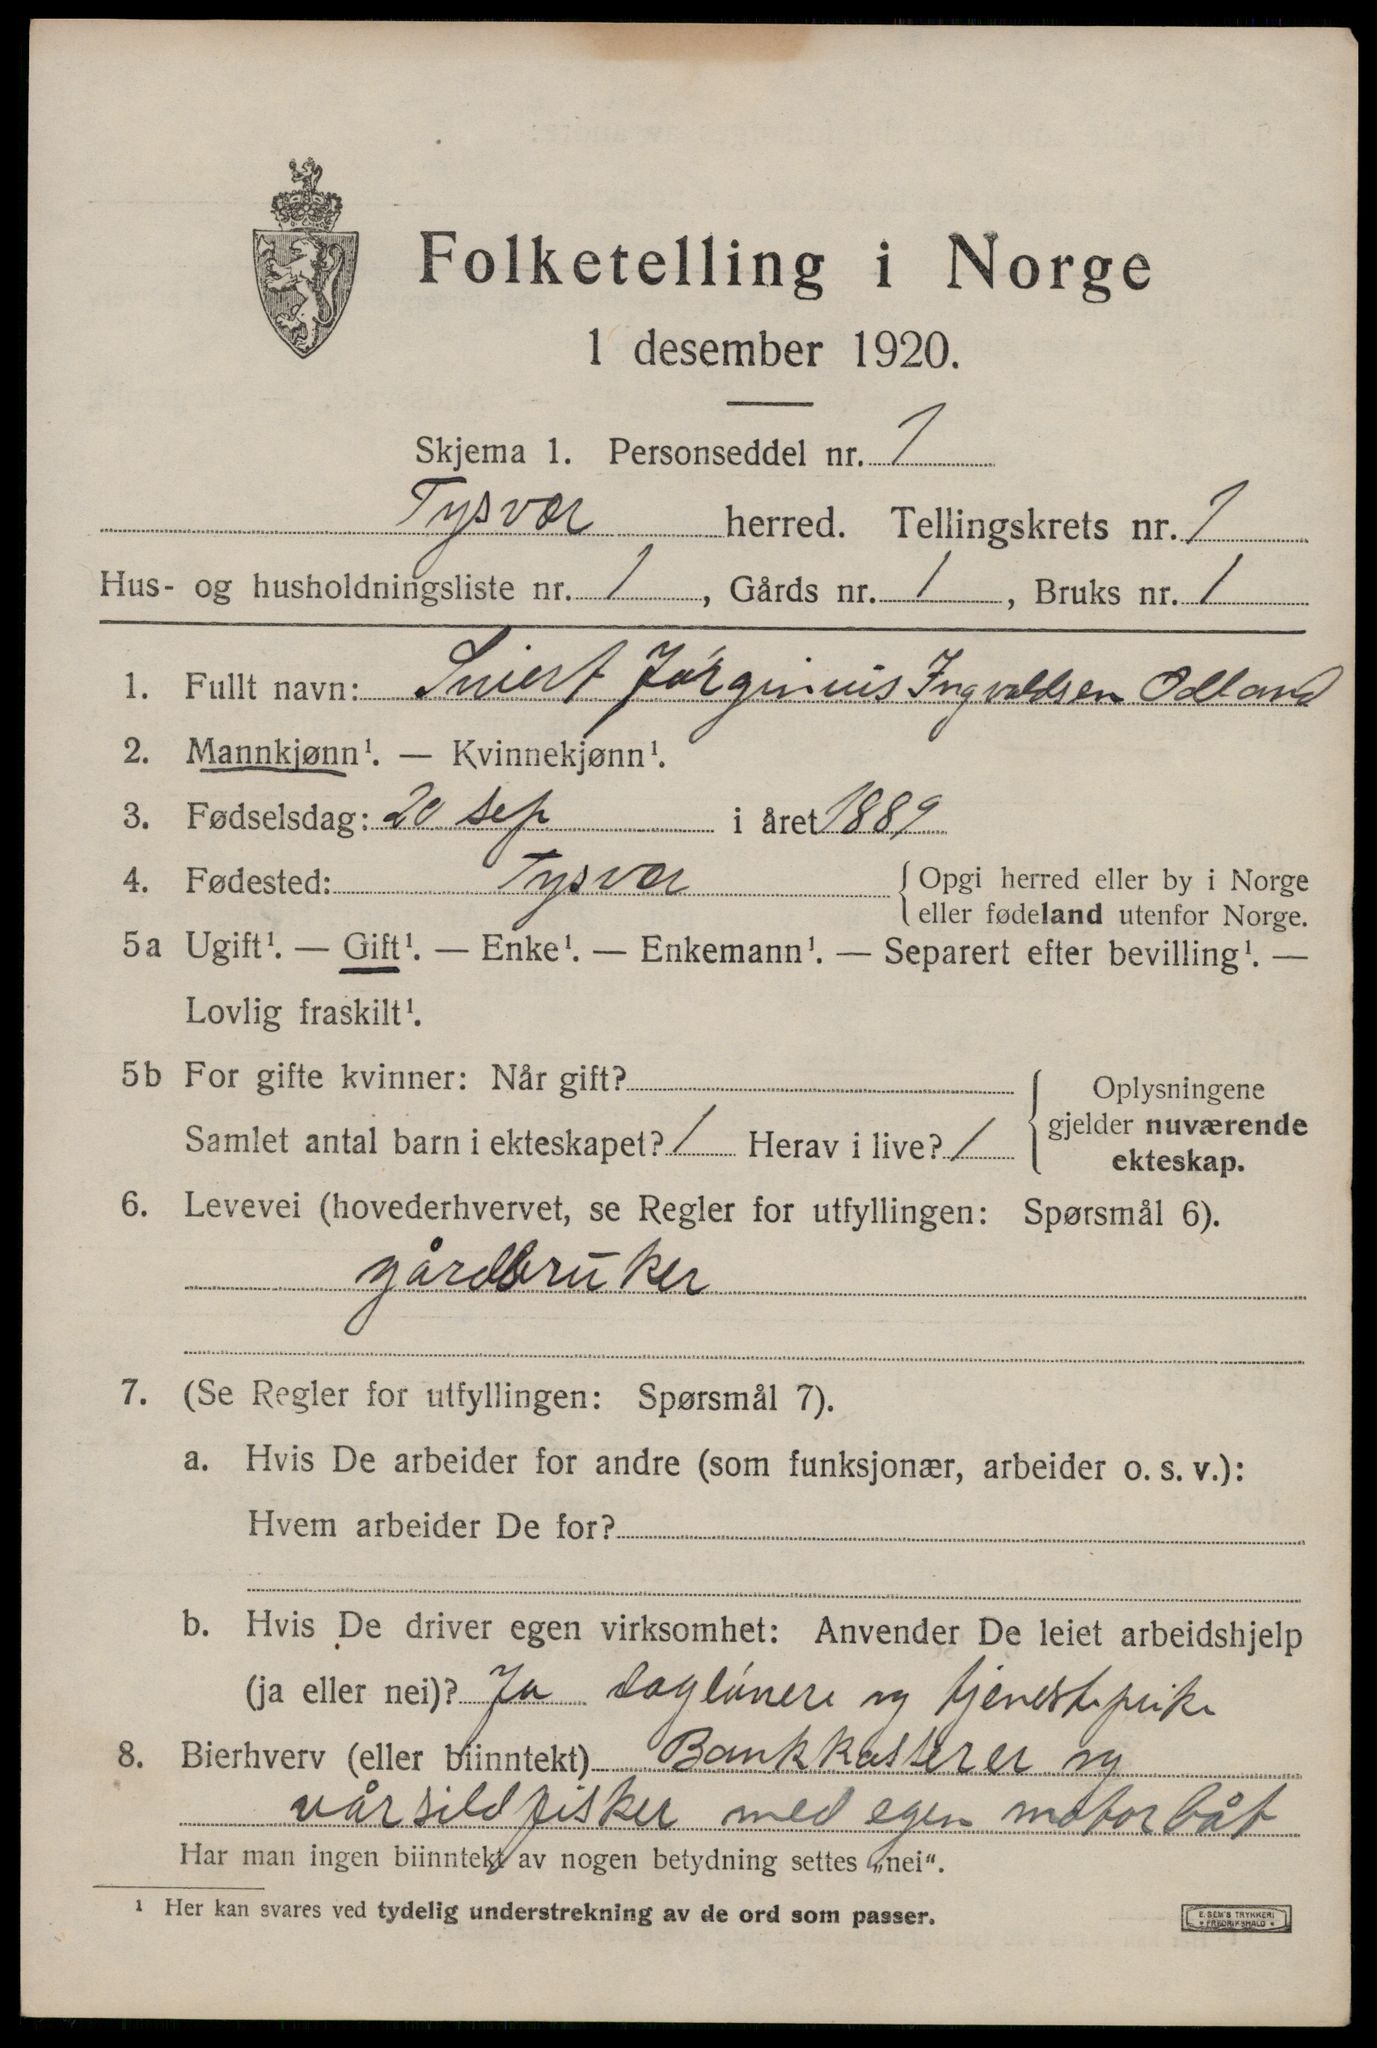 Folketelling i Norge
1 desember 1920.
Skjema 1. Personseddel nr. 1
Tysvær herred. Tellingskrets nr. 1
Hus- og husholdningsliste nr. 1, Gårds nr. 1, Bruks nr. 1
1. Fullt navn: Sivert Jørginius Ingvaldsen Odland
2. Mannkjønn¹. — Kvinnekjønn¹.
3. Fødselsdag: 20 sep i året 1889
4. Fødested: Tysvær { Opgi herred eller by i Norge
eller fødeland utenfor Norge.
5a Ugift¹. — Gift¹. — Enke¹. — Enkemann¹. — Separert efter bevilling¹. —
Lovlig fraskilt¹.
5b For gifte kvinner: Når gift?
Samlet antal barn i ekteskapet? 1 Herav i live? 1
{ Oplysningene
gjelder nuværende
ekteskap.
6. Levevei (hovederhvervet, se Regler for utfyllingen: Spørsmål 6).
gårdbruker
7. (Se Regler for utfyllingen: Spørsmål 7).
a. Hvis De arbeider for andre (som funksjonær, arbeider o. s. v.):
Hvem arbeider De for?
b. Hvis De driver egen virksomhet: Anvender De leiet arbeidshjelp
(ja eller nei)? Ja daglønere og tjenestepike
8. Bierhverv (eller biinntekt) Bankkasserer og
vårsildfisker med egen motorbåt
Har man ingen biinntekt av nogen betydning settes „nei“.
¹ Her kan svares ved tydelig understrekning av de ord som passer.
E. SEM'S TRYKKERI
FREDRIKSHALD